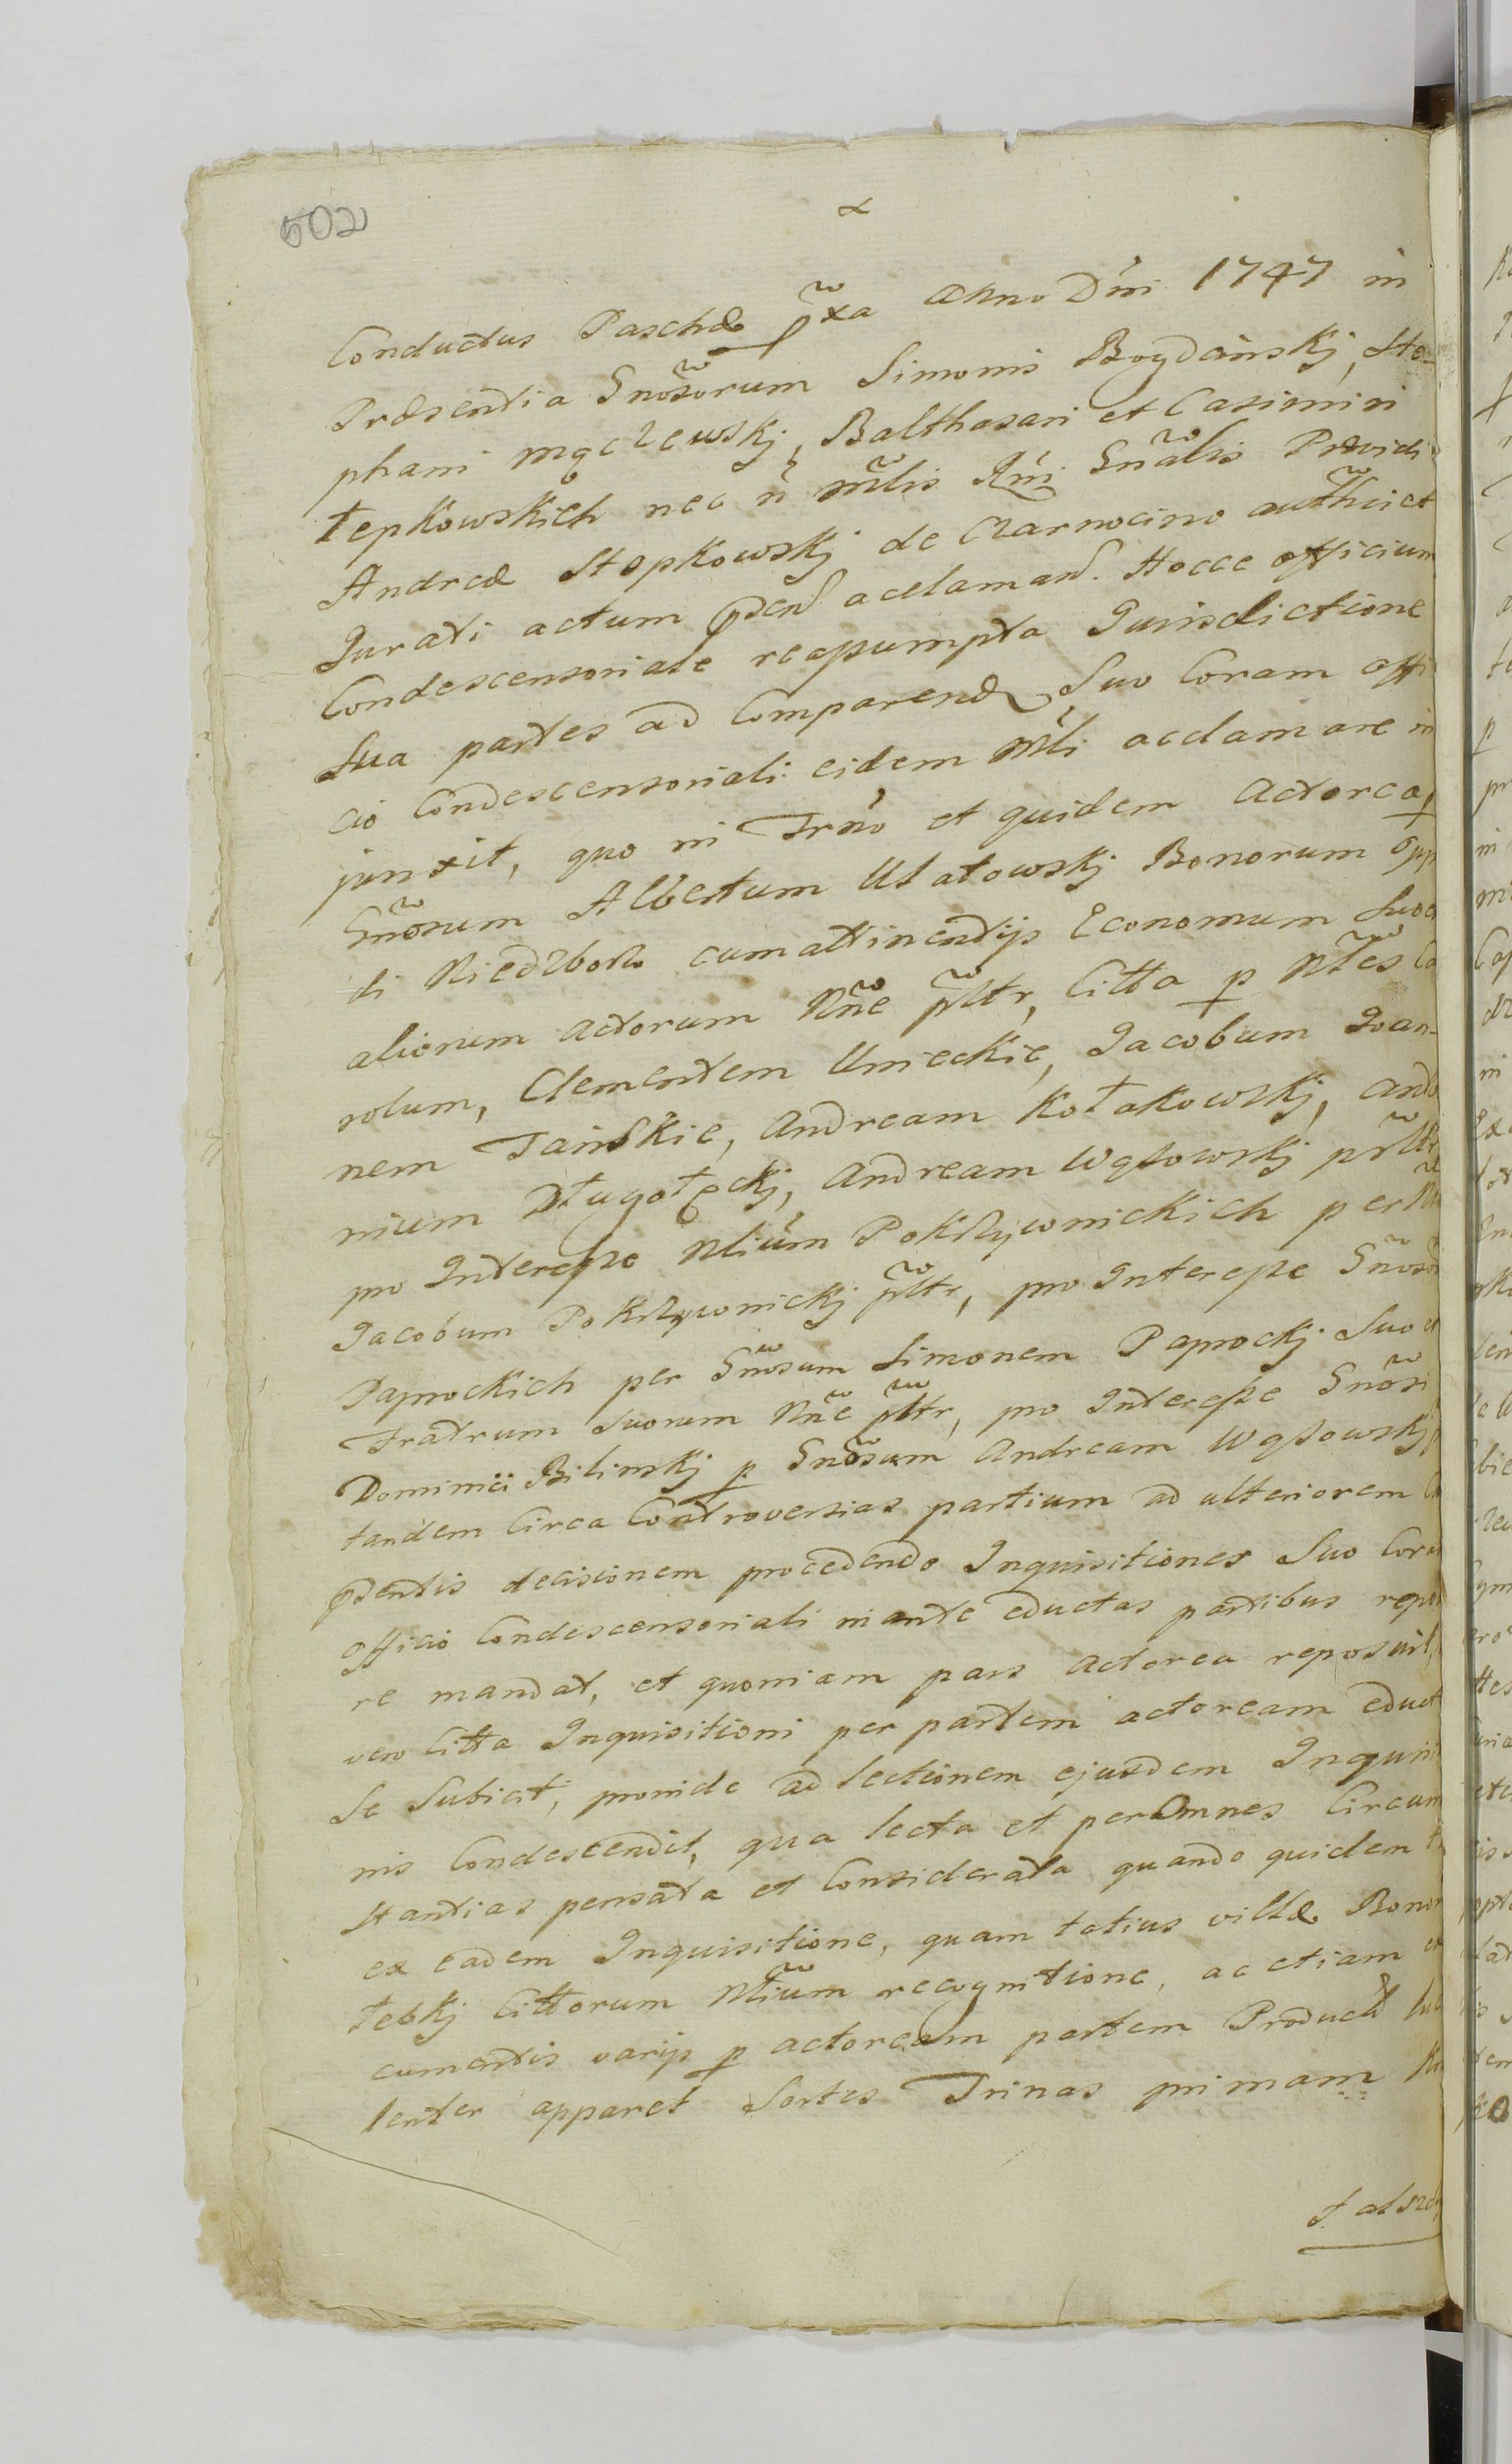 502
Conductus Paschæ pxa Anno Dni 1747 in
Præsentia Gnosorum Simonis Bogdański, Ste-
phani Mączewskj, Balthasari et Casimiri
Łepkowskich nec n mlis Rni Gnalis Providi
Andreæ Stopkowskj de Czarnocino authci et
Jurati actum pden acclaman. Hocce officium
Condescensoriale reassumpta Jurisdictione
Sua partes ad Comparend Suo Coram offi
cio Condescensoriali eidem Mli acclamare in
junxit, quo in Trno et quidem Actorea p
Gnorum Albertum Ulatowskj Bonorum Opp
di Niedzborz cum attinentijs Economum Suo
aliorum Actorum Nne pltr, Citta p Nles Ca
rolum, Clementem Unieckie, Jacobum Joan-
nem Tańskie, Andream Kołakowskj, Anto
nium Długołęckj, Andream Wąsowskj
pro Interesse Nlium Pokrzywnickich per
Jacobum Pokrzywnickj pltr, pro Interesse Gnosor
Paprockich per Gnosum Simonem Paprockj Suo et
Fratrum Suorum Nne pltr, pro Interesse Gnosi
Dominici Bilinskj p Gnosum Andream Wąsowskj
tandem Circa Controversias partium ad ulteriorem
pdentis decisionem procedendo Inquisitiones Suo Coram
Officio Condescensoriali in ante eductas partibus repo
re mandat, et quoniam pars Actorea reposuit,
vero Citta Inquisitioni per partem actoream educt
Se Subicit, proinde ad lectionem ejusdem Inquisi
nis Condescendit, qua lecta et per Omnes Circum
stantias pensata et Considerata quando quidem
ex eadem Inquisitione, quam totius villæ Bonor
Łebkj Cittorum Nlium recognitione, ac etiam
cumentis varijs p actoream partem Product
lenter apparet Sortes Trinas primam